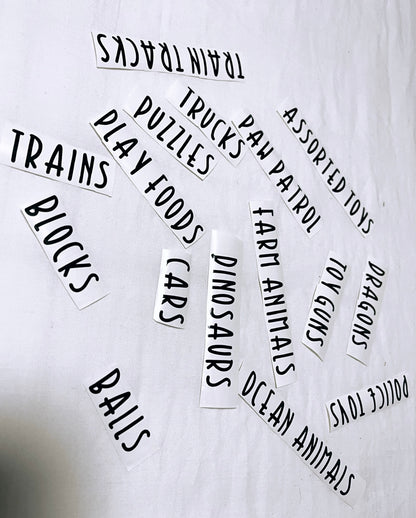 TRAIN TRACKS
TRUCKS
PUZZLES
PAW PATROL
ASSORTED TOYS
PLAY FOODS
TRAINS
BLOCKS
CARS
DINOSAURS
FARM ANIMALS
TOY GUNS
DRAGONS
BALLS
OCEAN ANIMALS
POLICE TOYS